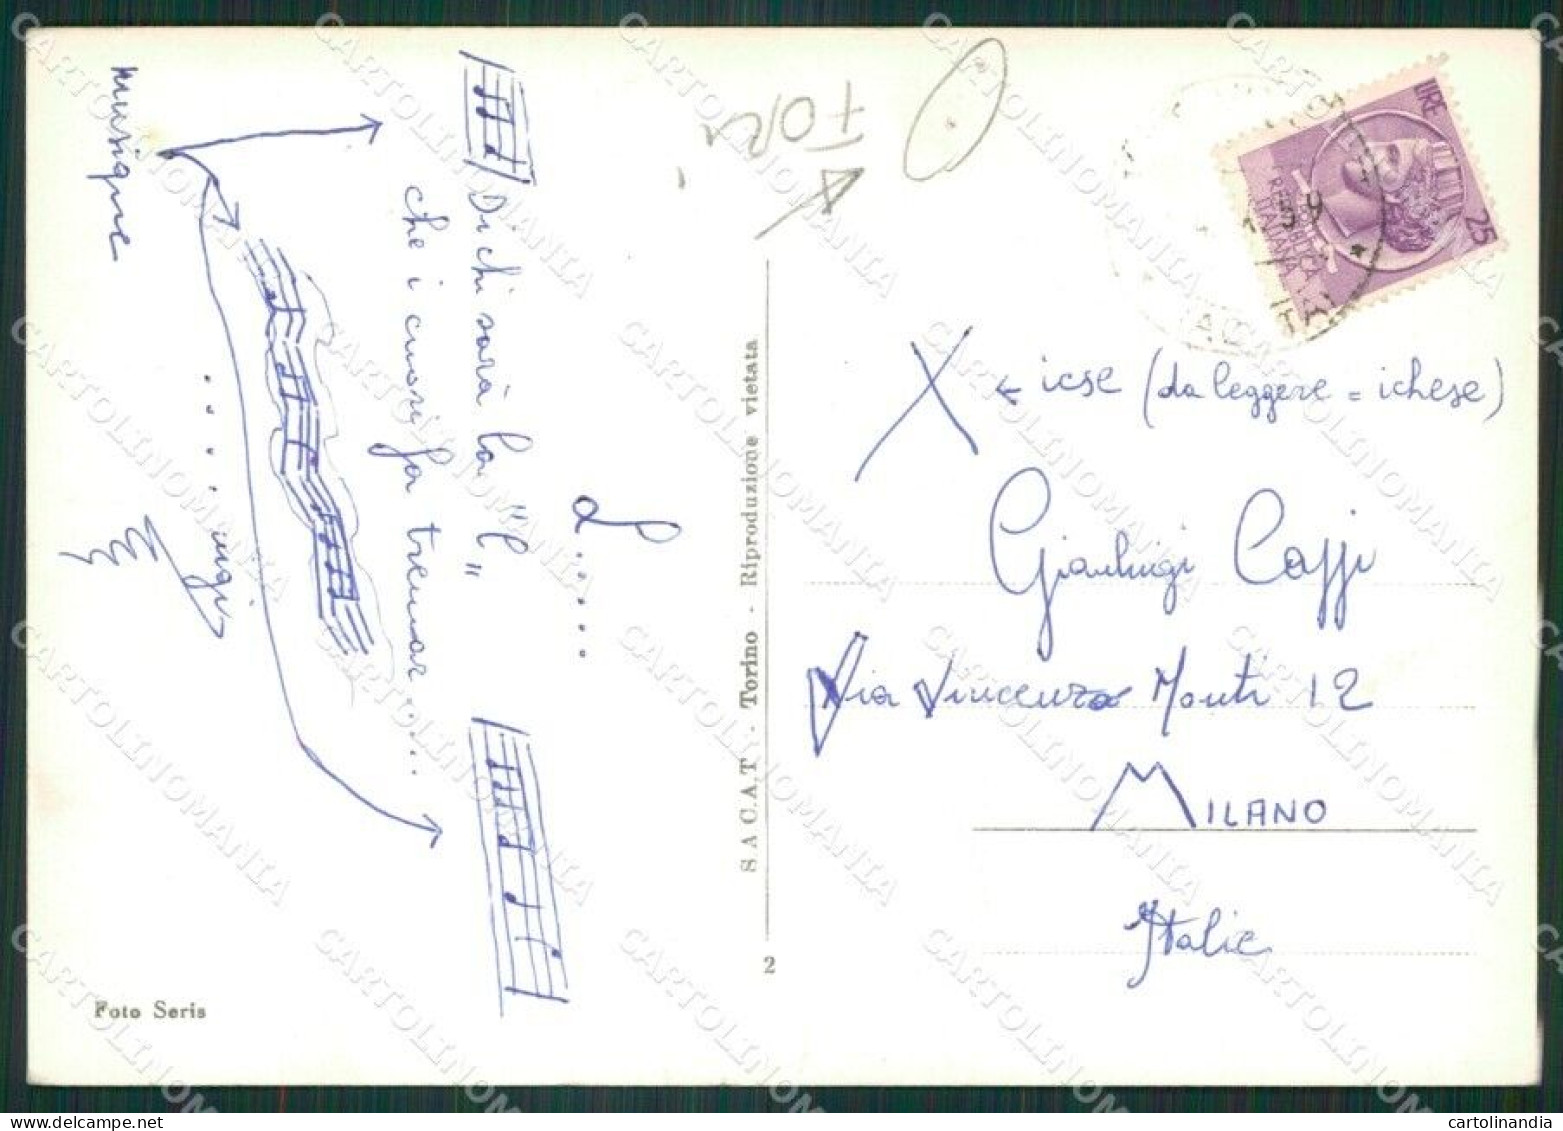 musique
Di chi sarà la "l"
che i cuori fa tremar.....
....uigi
L.....
FORI
LIRE
25
REPUBBLICA
ITALIANA
59
X ← icse (da leggere = ichese)
Gianluigi Caffi
Via Vincenzo Monti 12
MILANO
Italie
S A C.A.T. - Torino - Riproduzione vietata
2
Foto Seris
CARTOLINOMANIA
cartolinandia